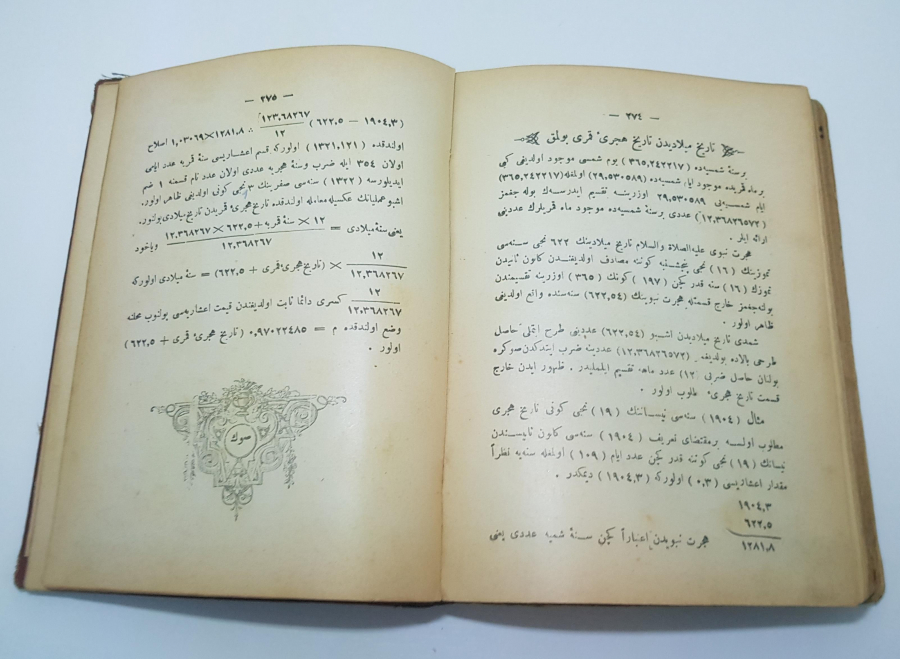 — ٢٧٤ —
تاریخ میلادیدن تاریخ هجریٔ قمری بولمق
برسنۀ شمسیه‌ده (٣٦٥,٢٤٢٢١٧) یوم شمسی موجود اولدیغی کبی
برماه قمریده موجود ایام شمسیه‌ده (٢٩,٥٣٠٥٨٩) اولغله (٣٦٥,٢٤٢٢١٧)
ایام شمسیه‌یی ٢٩,٥٣٠٥٨٩ اوزرینه تقسیم ایدرسه‌ك بوله جغمز
(١٢,٣٦٨٢٦٥٧٢) عددی برسنۀ شمسیه‌ده موجود ماه قمریلرك عددینی
ارائه ایلر .
هجرت نبوی علیه الصلاة والسلام تاریخ میلادینك ٦٢٢ نجی سنه‌سی
تموزینك (١٦) نجی پنجشنبه کوننه مصادف اولدیغندن کانون ثانیدن
تموزك (١٦) سنه قدر کچن (١٩٧) کونك (٣٦٥) اوزرینه تقسیمندن
بوله‌جغمز خارج قسمتله هجرت نبوینك (٦٢٢,٥٤) سنه‌سنده واقع اولدیغی
ظاهر اولور .
شمدی تاریخ میلادیدن اشبو (٦٢٢,٥٤) عددینی طرح ایتملی حاصل
طرحی بالاده بولدیغمز (١٢,٣٦٨٢٦٥٧٢) عددینه ضرب ایتدکدن صوکره
بولنان حاصل ضربی (١٢) عدد ماهه تقسیم ایلملیدر . ظهور ایدن خارج
قسمت تاریخ هجریٔ مطلوب اولور .
مثال (١٩٠٤) سنه‌سی نیسانك (١٩) نجی کونی تاریخ هجری
مطلوب اولسه برمقتضای تعریف (١٩٠٤) سنه‌سی کانون ثانیسندن
نیسانك (١٩) نجی کوننه قدر کچن عدد ایام (١٠٩) اولغله سنه‌یه نظراً
مقدار اعشاریسی (٠,٣) اولورکه (١٩٠٤,٣) دیمکدر .
١٩٠٤,٣
٦٢٢,٥
١٢٨١,٨
هجرت نبویدن اعتباراً کچن سنۀ شمسیه عددی یعنی
— ٢٧٥ —
(١٩٠٤,٣ — ٦٢٢,٥) ١٢٣,٦٨٢٦٧ / ١٢ ∴ ١٢٨١,٨×١,٠٣٠٦٩ اصلاح
اولندقده (١٣٢١,١٢١) اولورکه قسم اعشاریسی سنۀ قمریه عدد ایامی
اولان ٣٥٤ ایله ضرب وسنۀ هجریه عددی اولان عدد تام قسمنه ١ ضم
ایدیلورسه (١٣٢٢) سنه‌سی صفرینك ٣ نجی کونی اولدیغی ظاهر اولور.
اشبو عملیاتك عکسیله معامله اولندقده تاریخ هجریٔ قمریدن تاریخ میلادی بولنور.
یعنی سنۀ میلادی = ١٢ × سنۀ قمریه + ٦٢٢,٥ × ١٢,٣٦٨٢٦٧ / ١٢,٣٦٨٢٦٧ ویاخود
١٢ / ١٢,٣٦٨٢٦٧ × (تاریخ هجریٔ قمری + ٦٢٢,٥) = سنۀ میلادی اولورکه
١٢ / ١٢,٣٦٨٢٦٧ کسری دائما ثابت اولدیغندن قیمت اعشاریه‌سی بولنوب محلنه
وضع اولندقده م = ٠,٩٧٠٢٢٤٨٥ (تاریخ هجریٔ قمری + ٦٢٢,٥)
اولور .
صوك